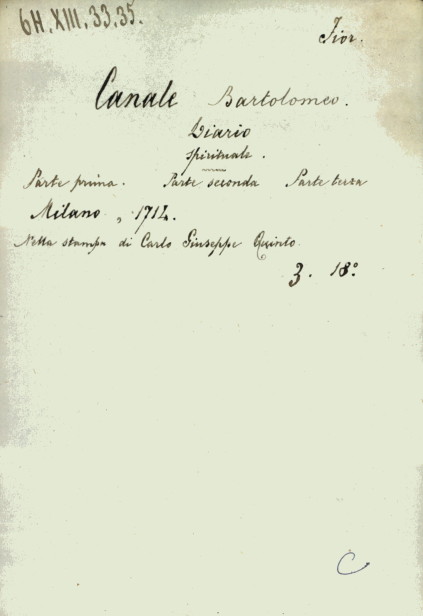 6H.XIII.33.35.
Fior.
Canale Bartolomeo.
Diario
spirituale.
Parte prima. Parte seconda Parte terza
Milano, 1712.
Nella stampa di Carlo Giuseppe Quinto
3. 18º
C